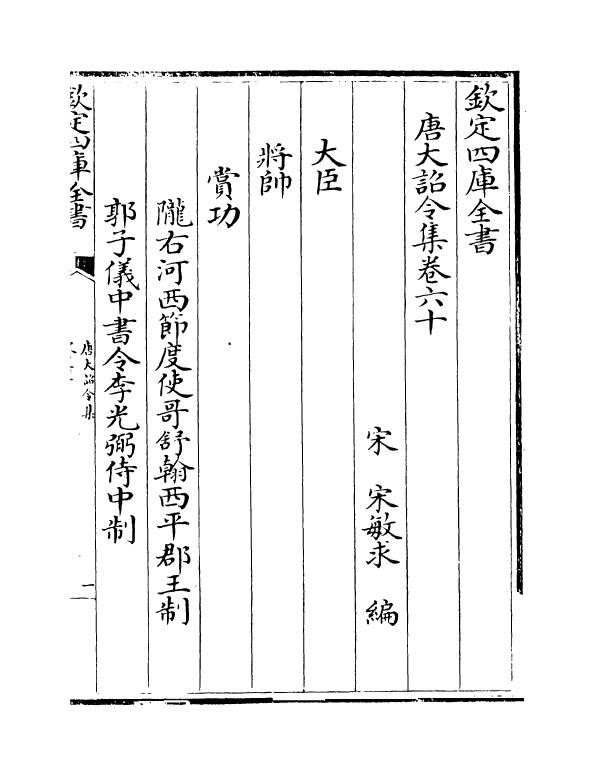 欽定四庫全書
唐大詔令集卷六十
宋 宋敏求 編
大臣
將帥
賞功
隴右河西節度使哥舒翰西平郡王制
郭子儀中書令李光弼侍中制
欽定四庫全書
唐大詔令集
一